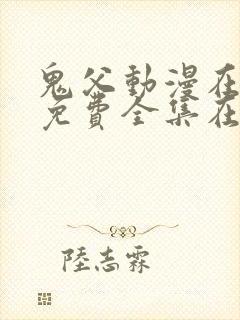 鬼父動漫在
免費全集在
陸志霖